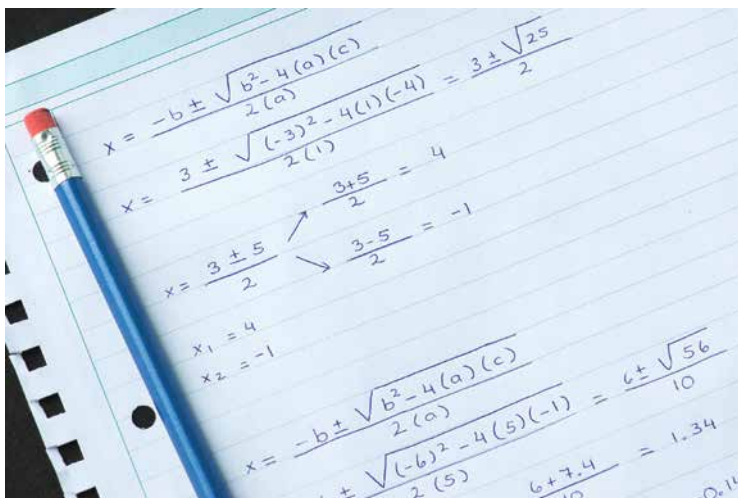 x = (-b ± √(b² - 4(a)(c))) / 2(a)
x = (3 ± √((-3)² - 4(1)(-4))) / 2(1) = (3 ± √25) / 2
x = (3 ± 5) / 2
↗ (3+5) / 2 = 4
↘ (3-5) / 2 = -1
x₁ = 4
x₂ = -1
x = (-b ± √(b² - 4(a)(c))) / 2(a)
± √((-6)² - 4(5)(-1)) / 2(5) = (6 ± √56) / 10
6+7.4 = 1.34